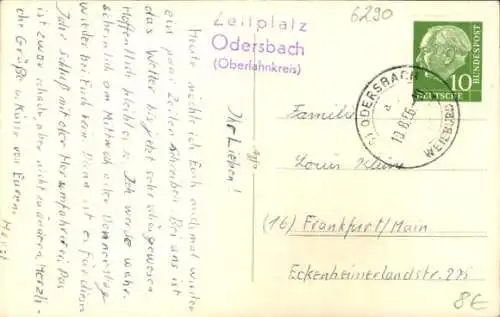 Ihr Lieben!
Heute möchte ich Euch endmal wieder
ein paar Zeilen schreiben. Bei uns ist
das Wetter bis jetzt sehr schön gewesen
Hoffentlich bleibt es. Ich werde wahr-
scheinlich am Mittwoch oder Donnerstag
wieder bei Euch sein. Dann ist es für dieses
Jahr Schluß mit der Herumfahrerei. Das
ist zwar schade, aber nicht zu ändern. Herzli-
che Grüße u. Küsse von Eurem
Horst
Zeltplatz
Odersbach
(Oberlahnkreis)
6290
DEUTSCHE BUNDESPOST
10
ODERSBACH
a
10.8.56
WEILBURG
Familie
Louis Kleine
(16) Frankfurt/Main
Eckenheimerlandstr. 275
8€